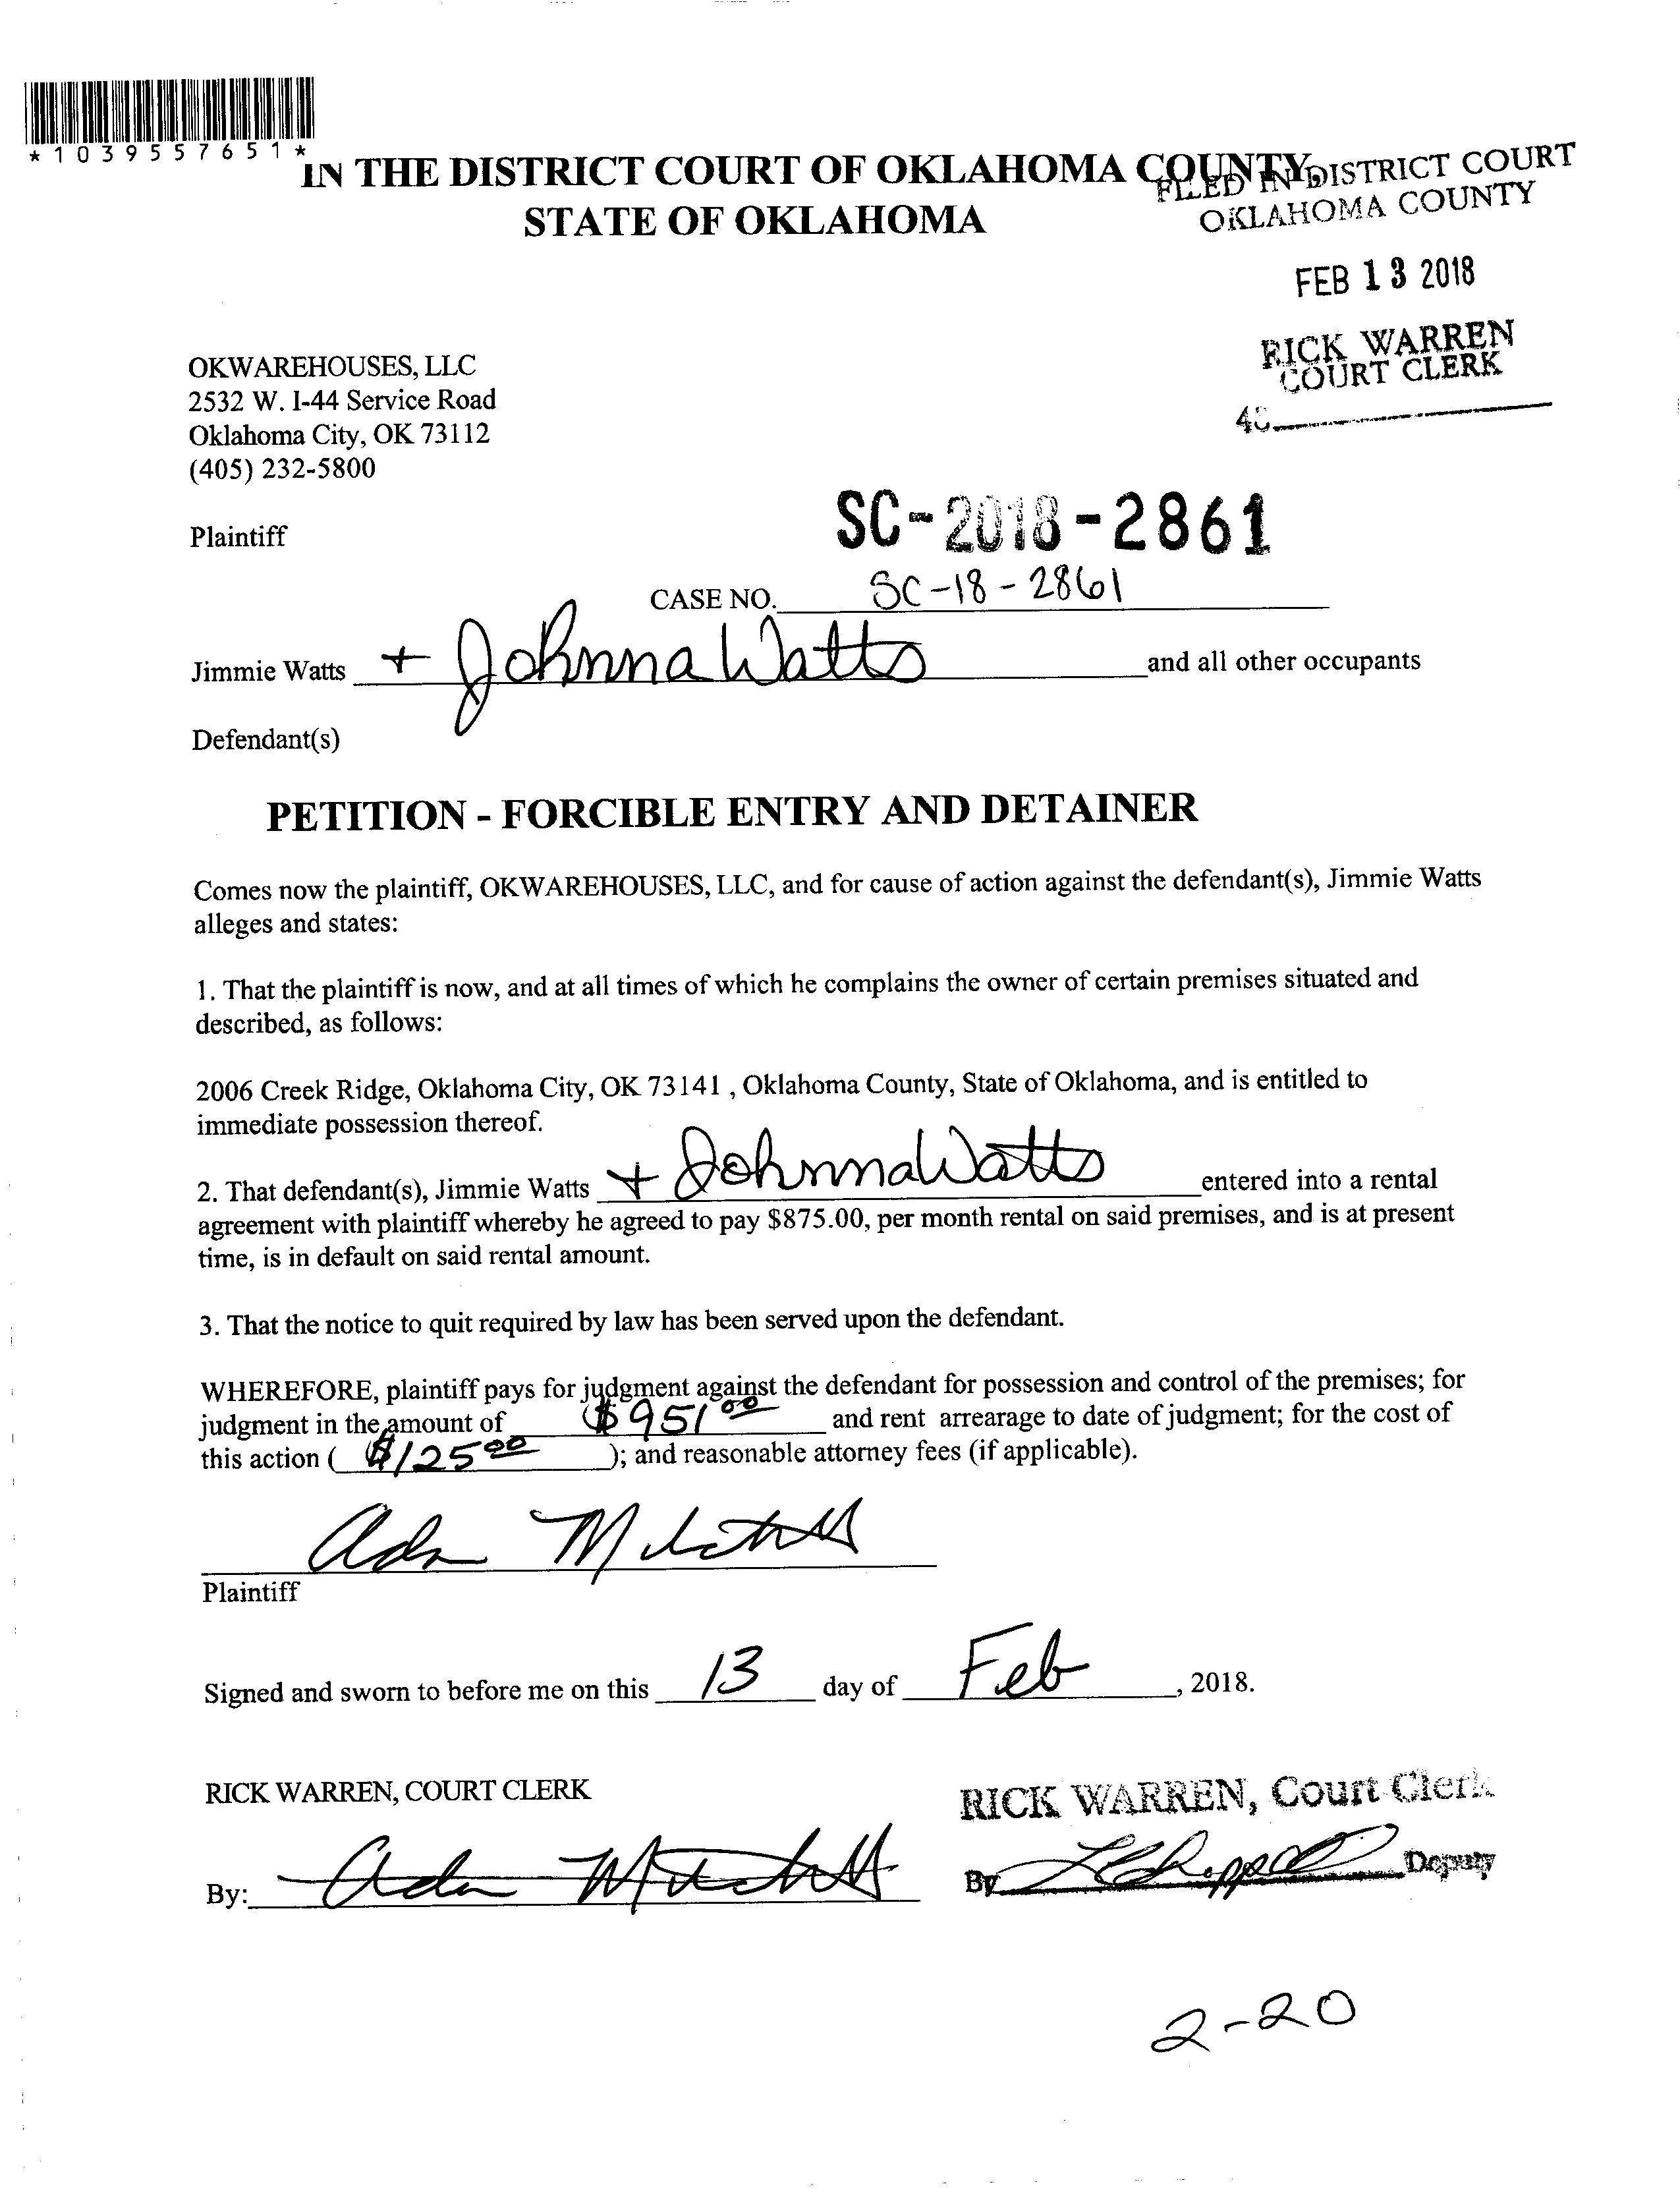 *1039557651*
IN THE DISTRICT COURT OF OKLAHOMA COUNTY
STATE OF OKLAHOMA
FILED IN DISTRICT COURT
OKLAHOMA COUNTY
FEB 13 2018
RICK WARREN
COURT CLERK
OKWAREHOUSES, LLC
2532 W. I-44 Service Road
Oklahoma City, OK 73112
(405) 232-5800
Plaintiff
SC-2018-2861
CASE NO. SC-18-2861
Jimmie Watts + Johnna Watts and all other occupants
Defendant(s)
PETITION - FORCIBLE ENTRY AND DETAINER
Comes now the plaintiff, OKWAREHOUSES, LLC, and for cause of action against the defendant(s), Jimmie Watts
alleges and states:
1. That the plaintiff is now, and at all times of which he complains the owner of certain premises situated and
described, as follows:
2006 Creek Ridge, Oklahoma City, OK 73141 , Oklahoma County, State of Oklahoma, and is entitled to
immediate possession thereof.
2. That defendant(s), Jimmie Watts + Johnna Watts entered into a rental
agreement with plaintiff whereby he agreed to pay $875.00, per month rental on said premises, and is at present
time, is in default on said rental amount.
3. That the notice to quit required by law has been served upon the defendant.
WHEREFORE, plaintiff pays for judgment against the defendant for possession and control of the premises; for
judgment in the amount of $951 00 and rent arrearage to date of judgment; for the cost of
this action ( $125 00 ); and reasonable attorney fees (if applicable).
Plaintiff
Signed and sworn to before me on this 13 day of Feb , 2018.
RICK WARREN, COURT CLERK
RICK WARREN, Court Clerk
By:
By Deputy
2-20